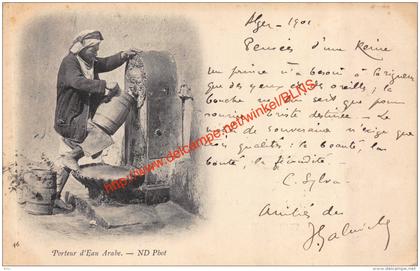 Alger - 1901
Pensées d'une Reine
Un prince n'a besoin à la rigueur
que des yeux et des oreilles; la
bouche ne lui sert que pour
sourire. Triste destinée - Le
de souveraine n'exige que
trois qualités: la beauté, la
bonté, la fécondité.
C. Sylva
Amitiés de
www.picking.winkel/BLNS
46
Porteur d'Eau Arabe. — ND Phot